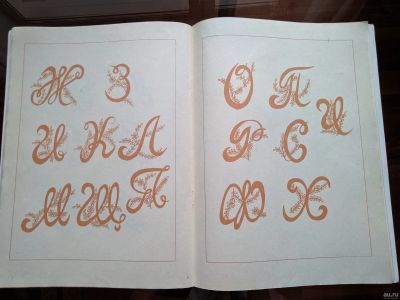 Ж З
И К Л
М Щ Т
О П
Р С Ц
Ф Х
au.ru